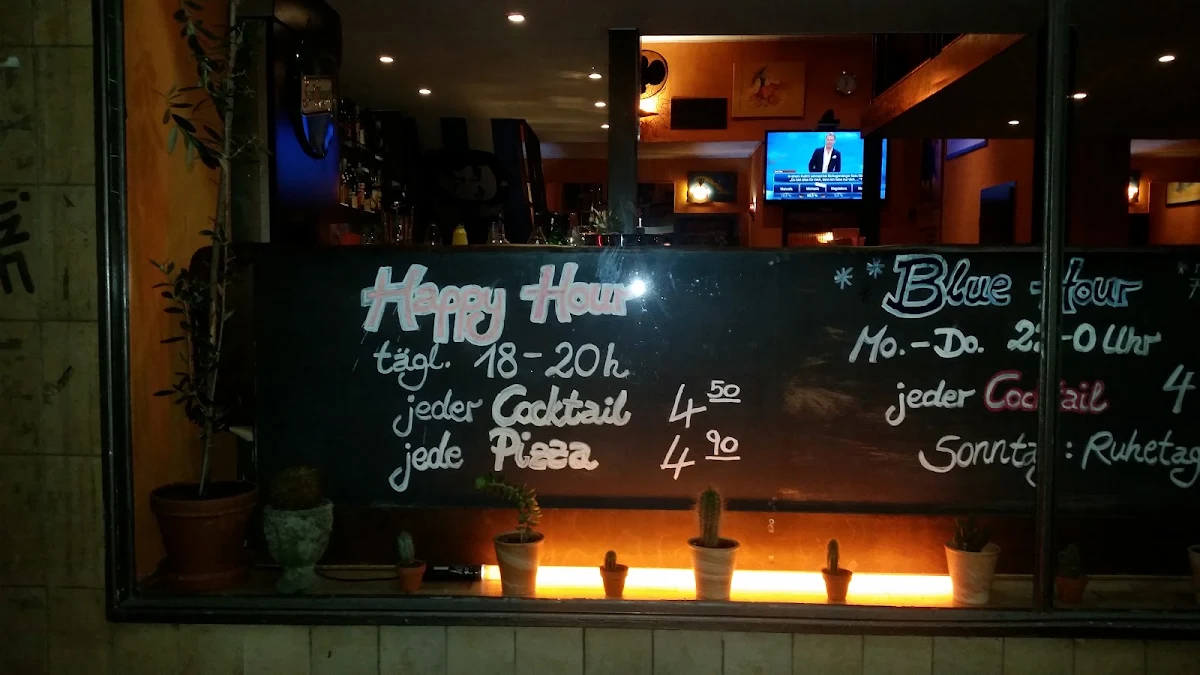 Happy Hour
tägl. 18-20h
jeder Cocktail 4 50
jede Pizza 4 90
Blue Hour
Mo.-Do. 22-0 Uhr
jeder Cocktail 4
Sonntag: Ruhetag